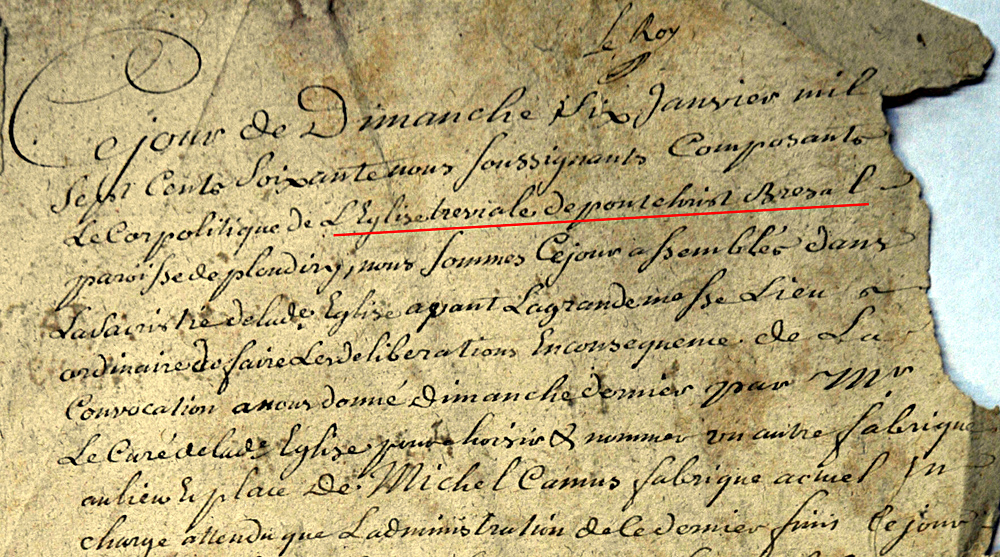 Le Roy
Ce jour de Dimanche Six Janvier mil
Sept Cents Soixante nous soussignants Composants
Le Corpolitique de L'Eglise treviale de pontchrist Bresal
paroisse de ploudiry, nous sommes Ce jour assemblés dans
La Sacristie de lade Eglise ayant La grande messe Lieu
ordinaire de faire Les deliberations En consequence de La
Convocation a nous donné dimanche dernier par Mr
Le Curé de lade Eglise pour choisir & nommer un autre fabrique
au lieu & place de Michel Camus fabrique actuel In
charge attendu que L'administration de ce dernier finit Ce jour